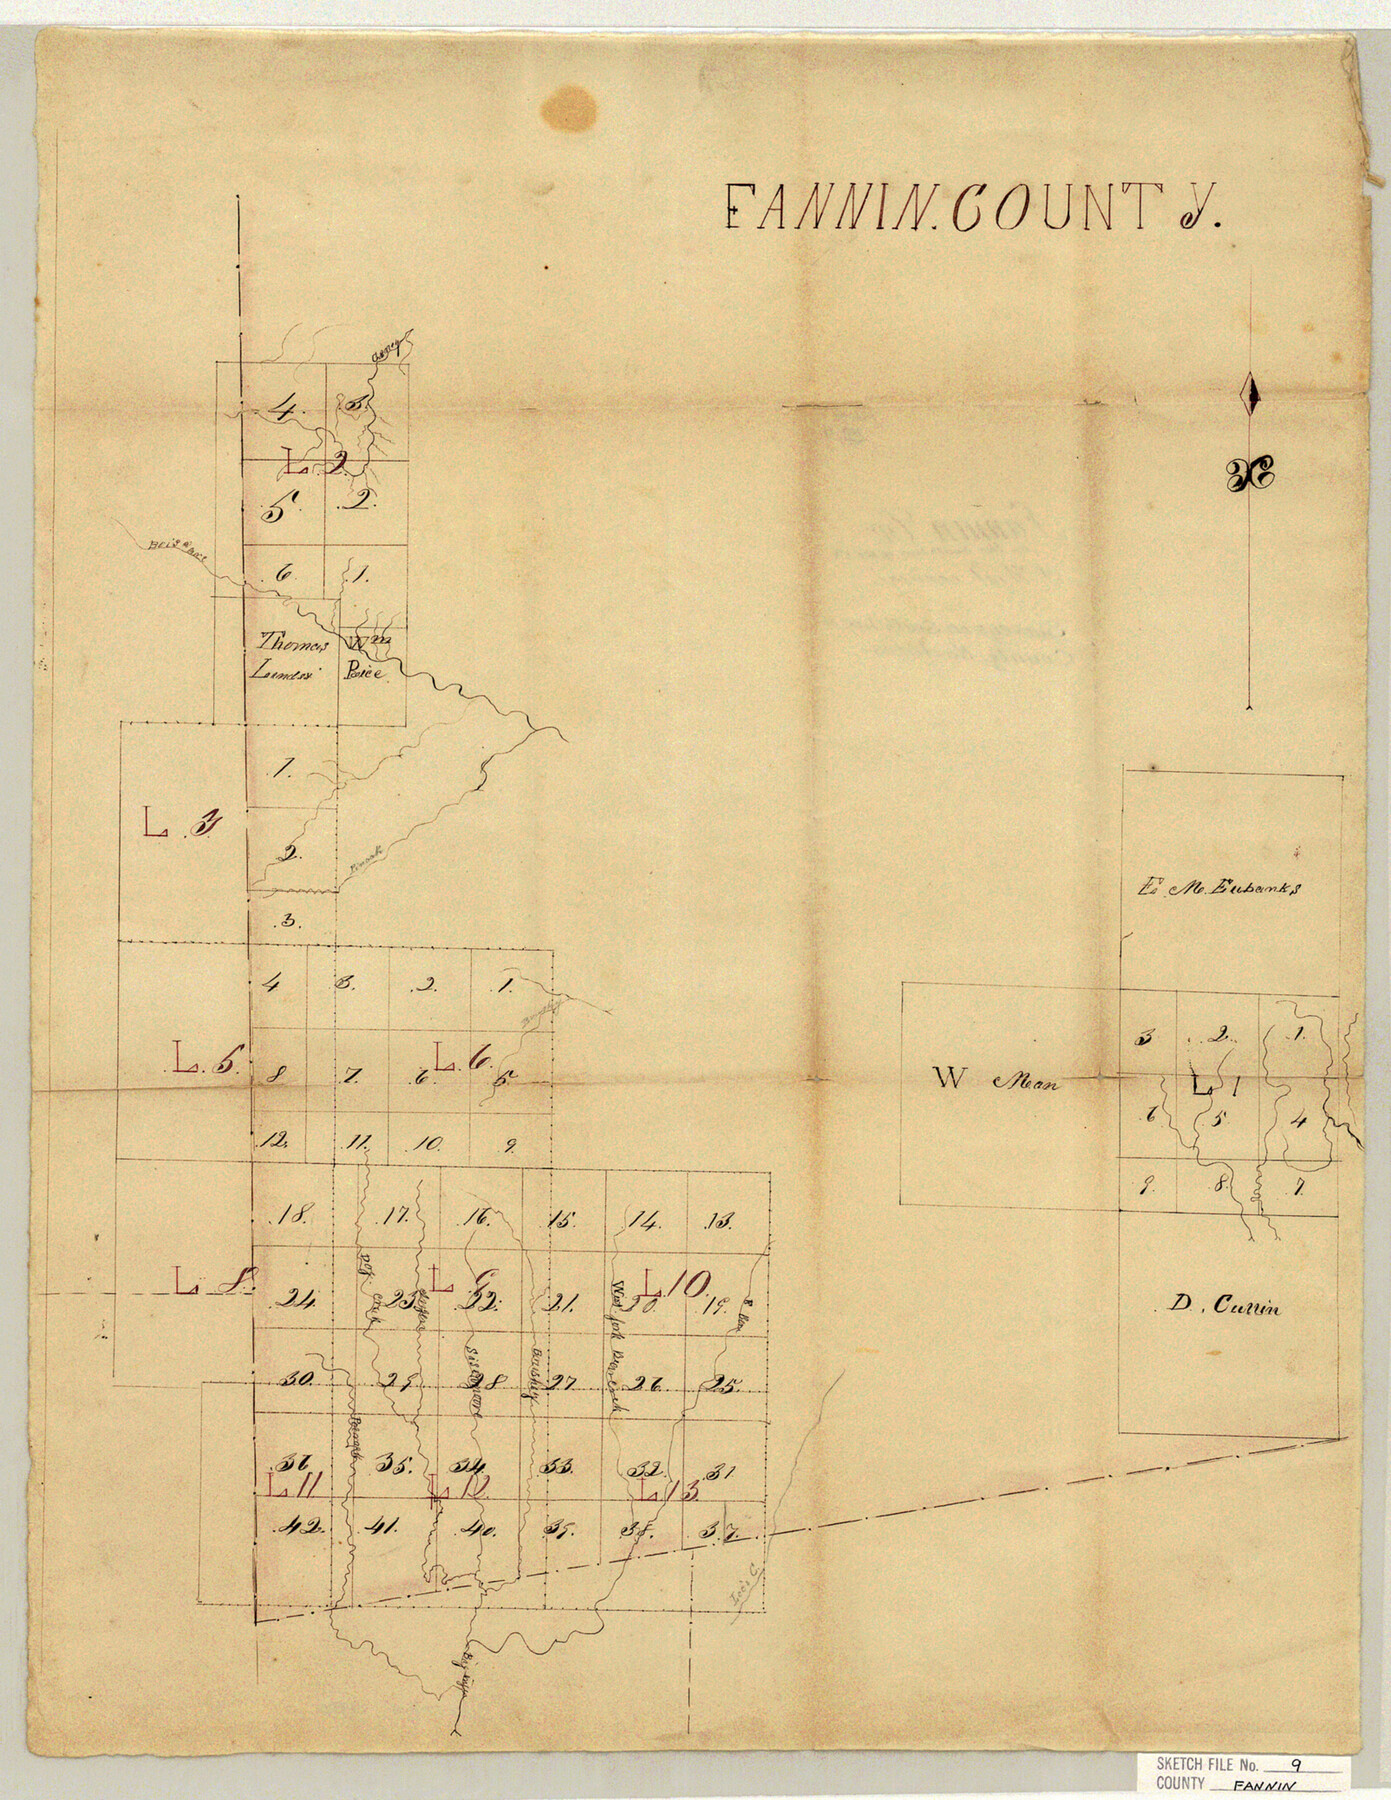 FANNIN. COUNTY.
4. 3.
L. 2.
5. 2.
6. 1.
Thomas
Wm
Price
1.
L. 3
2.
3.
E. M. Eubanks
4 3. 2. 1.
L. 5. L. 6.
8 7. 6. 5
12. 11. 10. 9.
W Mean
3 2. 1.
L 1
6 5 4
9. 8. 7.
18. 17. 16. 15. 14. 13.
L. 8. L 9 L 10.
24. 23. 22. 21. 20. 19.
Creek
Sickamore
Brushey
West fork
30. 29 28 27 26. 25.
36 35. 34. 33. 32. 31
L 11 L 12. L 13.
42. 41. 40. 39. 38. 37.
D. Cullin
Lee's C.
SKETCH FILE No. 9
COUNTY FANNIN